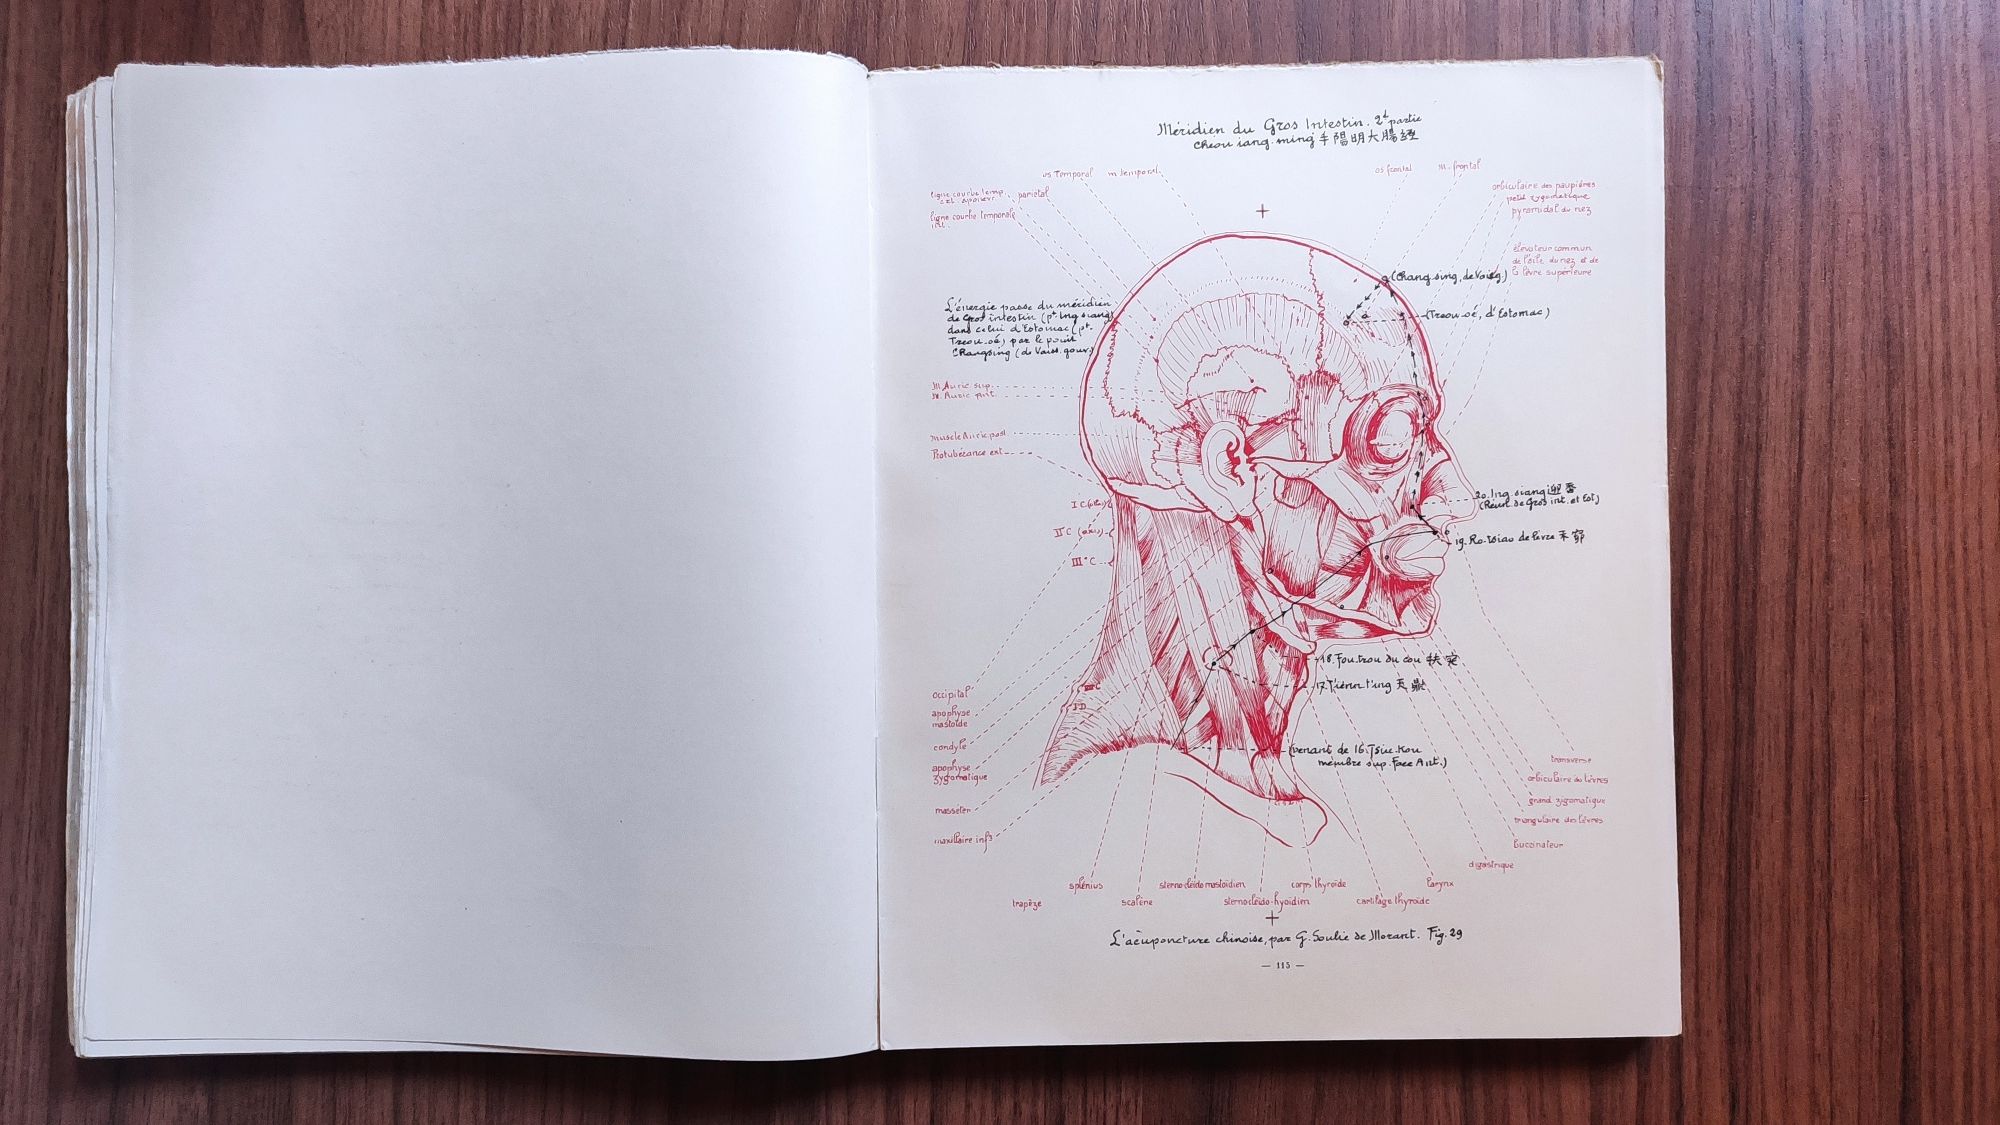 Méridien du Gros Intestin. 2ᵉ partie
Cheou iang-ming 手陽明大腸經
os Temporal
m temporal
os frontal
m. frontal
ligne courbe temp.
ext.
pariétal
ligne courbe temporale
int.
orbiculaire des paupières
petit zygomatique
pyramidal du nez
élevateur commun
de l'aile du nez et de
la lèvre supérieure
(Chang.sing, de Vaiss.g.)
(Treou-oé, d'Estomac)
L'énergie passe du méridien
de Gros intestin (pᵗ Ing siang)
dans celui d'Estomac (pᵗ.
Treou-oé) par le point
Changsing (de Vaiss. gouv.)
M. Auric. sup.
M. Auric. Ant.
muscle Auric. post.
Protubérance ext
I C. (atlas)
II C (axis)
III° C
20. Ing siang 迎香
(Réun. de Gros int. et Est)
19. Ro-tsiao de lèvre 禾窌
18. Fou-trou du cou 扶突
17. T'iénn t'ing 天鼎
VII C
I D
(venant de 16. Tsiu-kou
membre sup. Face Ant.)
occipital
apophyse
mastoïde
condyle
apophyse
zygomatique
masséter
maxillaire infʳ
transverse
orbiculaire des lèvres
grand zygomatique
triangulaire des lèvres
buccinateur
digastrique
splénius
sterno-cléido mastoïdien
corps thyroïde
larynx
trapèze
scalène
sternocléido-hyoïdien
cartilage thyroïde
L'acuponcture chinoise, par G. Soulié de Morant. Fig. 29
— 115 —